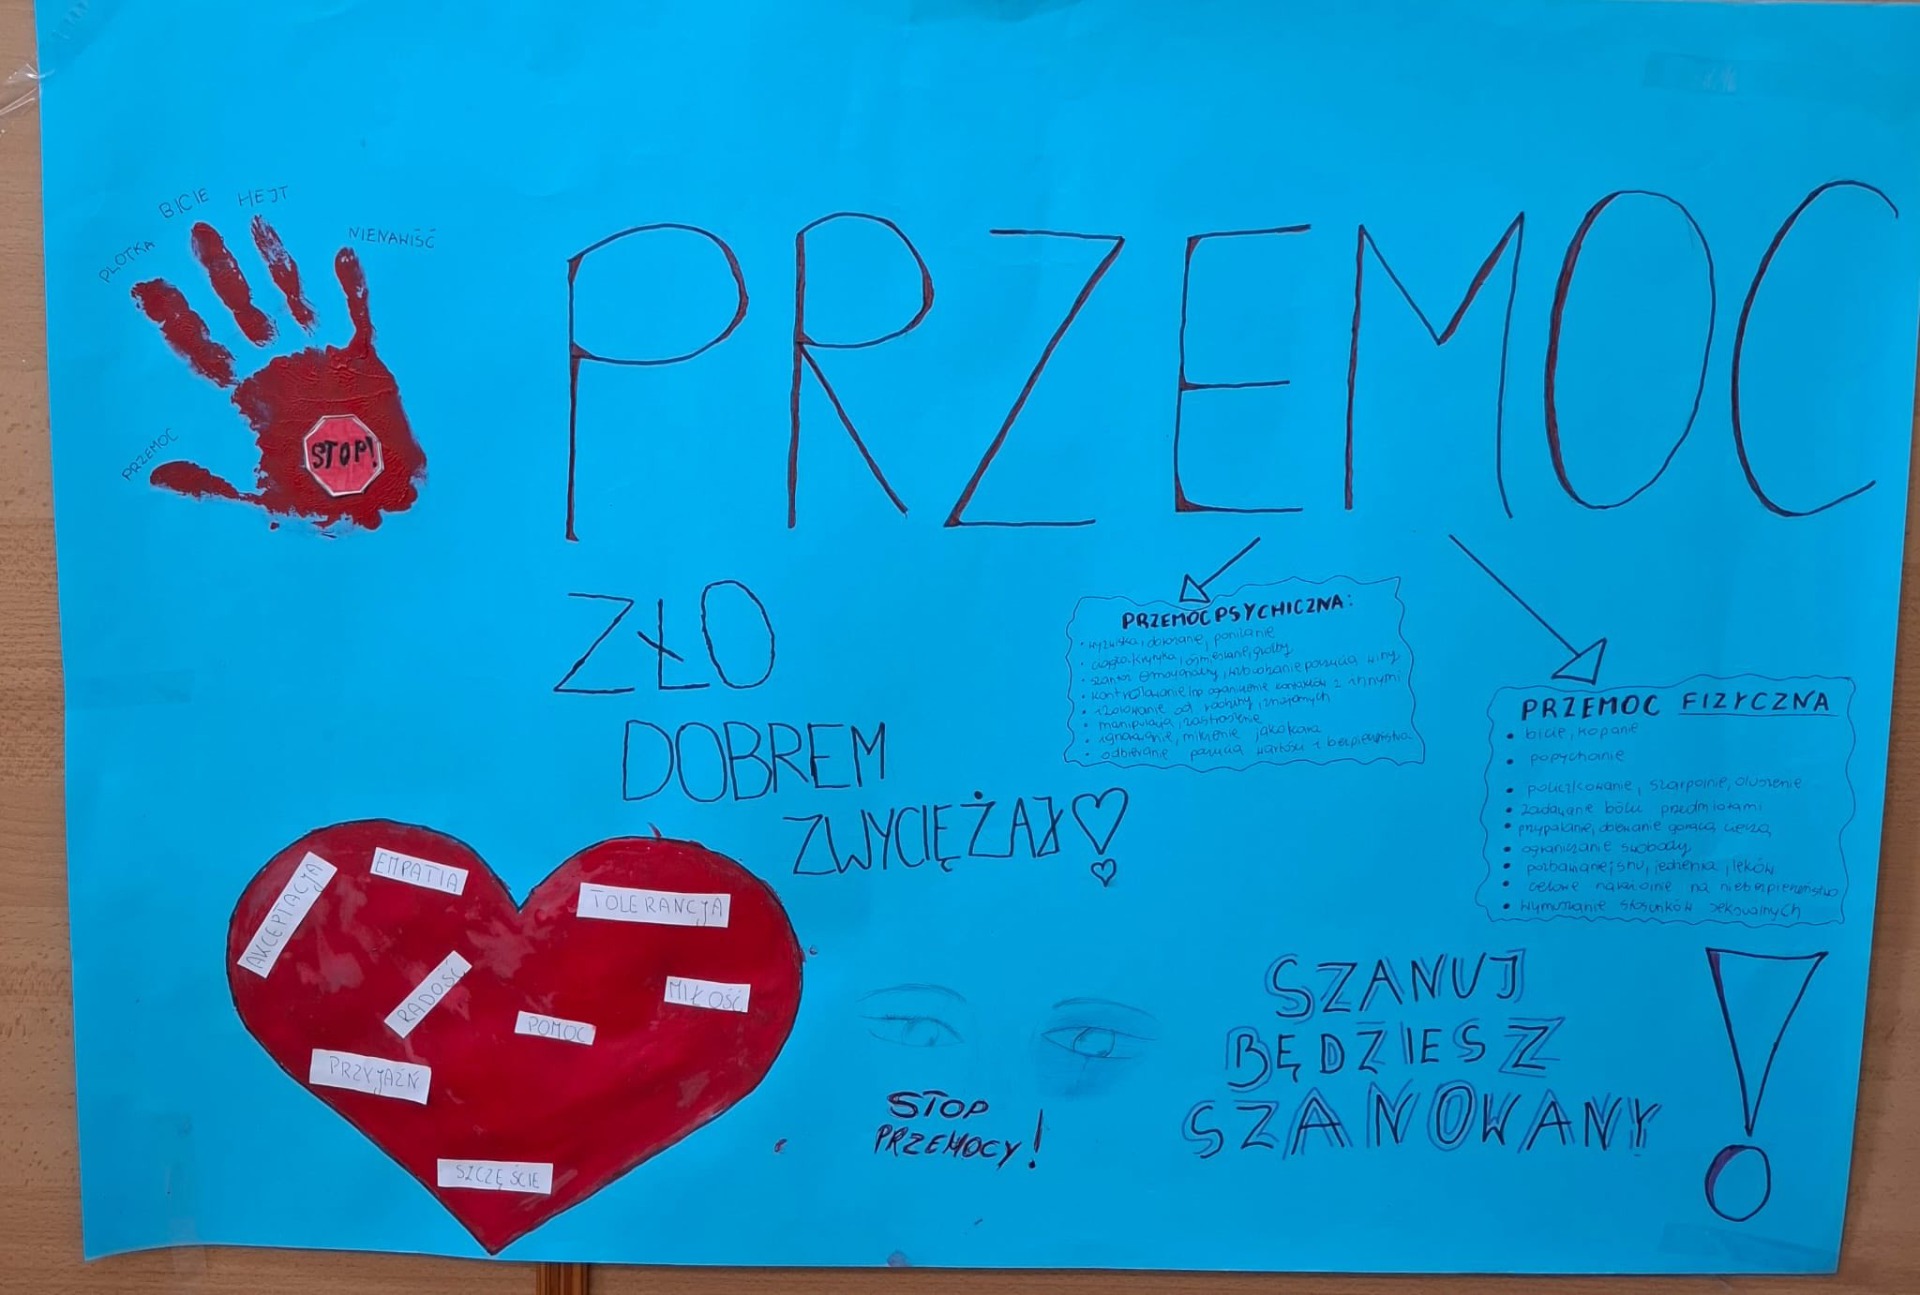 PLOTKA
BICIE
HEJT
NIENAWIŚĆ
PRZEMOC
STOP!
PRZEMOC
ZŁO
DOBREM
ZWYCIĘŻAJ
PRZEMOC PSYCHICZNA:
• wyzwiska, poniżanie
• ciągła krytyka, ośmieszanie, groźby
• szantaż emocjonalny, wzbudzanie poczucia winy
• kontrolowanie np ograniczenie kontaktów z innymi
• izolowanie od rodziny, znajomych
• manipulacja, zastraszenie
• ignorowanie, milczenie jako kara
• odbieranie poczucia wartości i bezpieczeństwa
PRZEMOC FIZYCZNA
• bicie, kopanie
• popychanie
• policzkowanie, szarpanie, duszenie
• zadawanie bólu przedmiotami
• przypalanie, oblewanie gorącą cieczą
• ograniczanie swobody
• pozbawianie snu, jedzenia, leków
• celowe narażanie na niebezpieczeństwo
• wymuszanie stosunków seksualnych
AKCEPTACJA
EMPATIA
TOLERANCJA
RADOŚĆ
MIŁOŚĆ
POMOC
PRZYJAŹŃ
SZCZĘŚCIE
STOP
PRZEMOCY!
SZANUJ
BĘDZIESZ
SZANOWANY
!